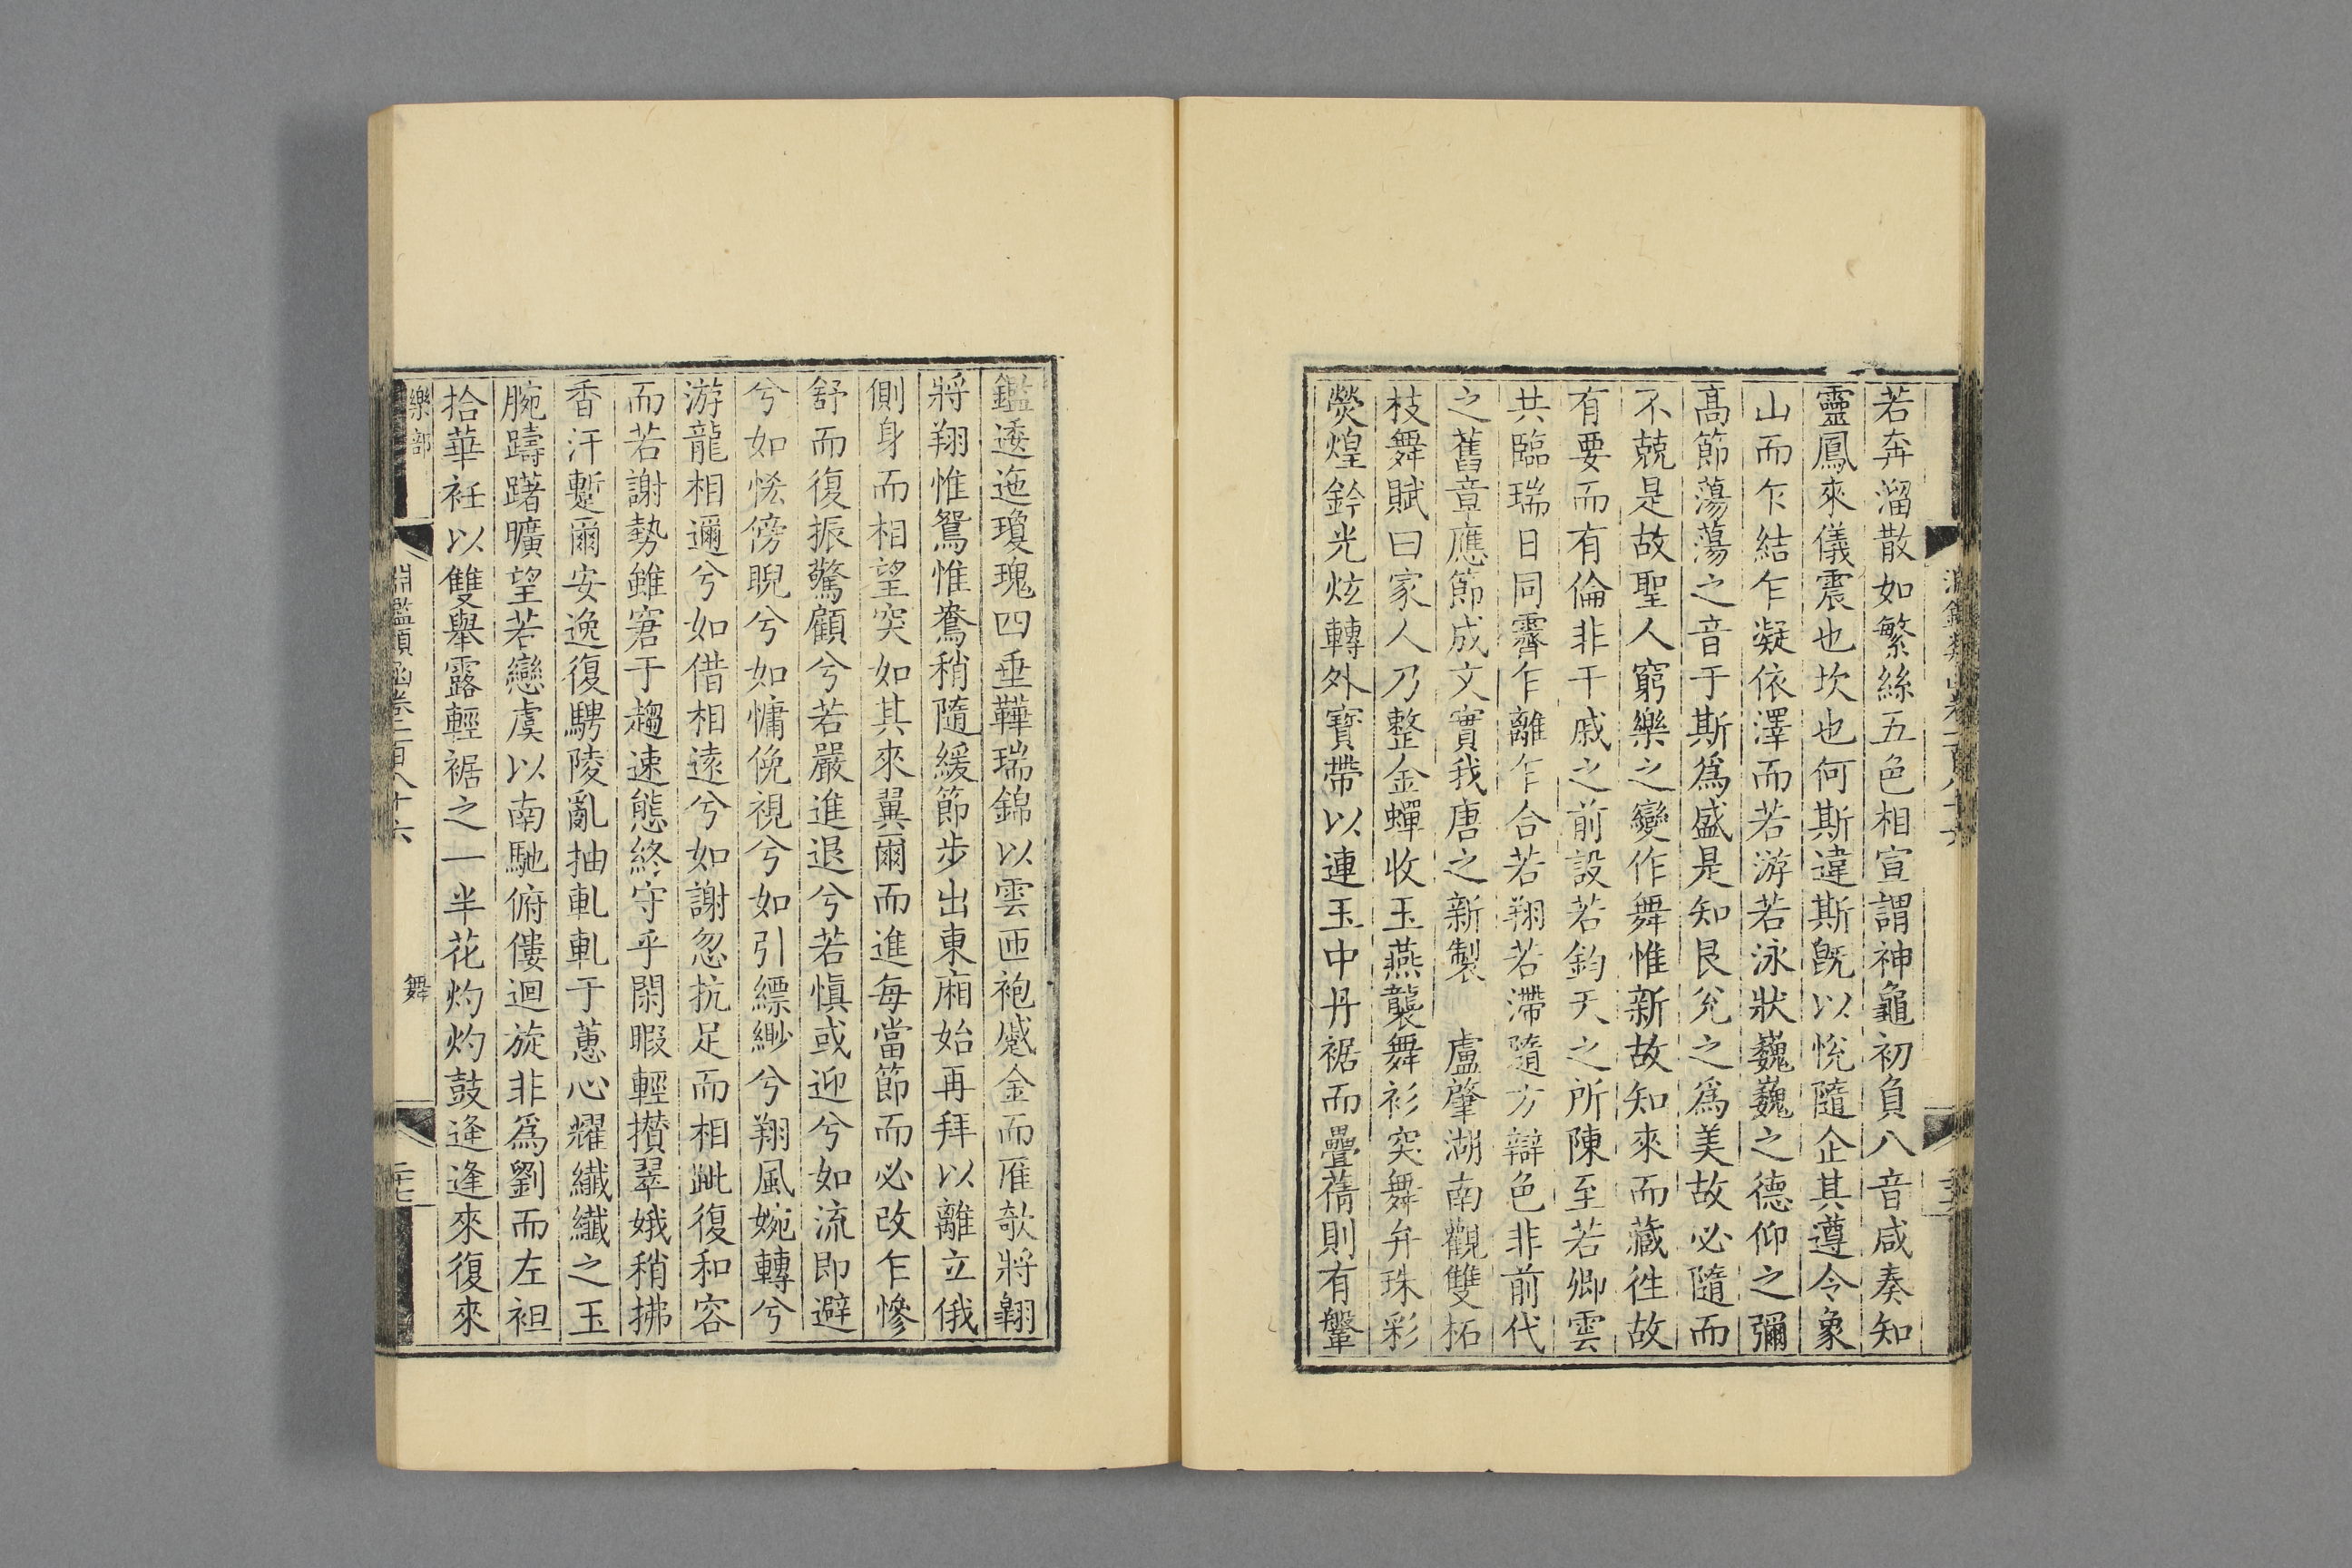 若奔溜散如繁絲五色相宣謂神龜初負八音咸奏知
靈鳳來儀震也坎也何斯違斯旣以恱隨企其遵令象
山而乍結乍凝依澤而若游若泳狀巍巍之德仰之彌
高節蕩蕩之音于斯爲盛是知艮兊之爲美故必隨而
不兢是故聖人窮樂之變作舞惟新故知來而藏徃故
有要而有倫非干戚之前設若鈞天之所陳至若卿雲
共臨瑞日同霽乍離乍合若翔若滯隨方辯色非前代
之舊章應節成文實我唐之新製 盧肇湖南觀雙柘
枝舞賦曰家人乃整金蟬收玉燕襲舞衫突舞弁珠彩
熒煌鈐光炫轉外寳帶以連玉中丹裾而疊蒨則有鞶
鑑逶迤瓊瑰四垂鞾瑞錦以雲匝袍蹙金而雁欹將翱
將翔惟鴛惟鴦稍隨緩節步出東廂始再拜以離立俄
側身而相望突如其來翼爾而進每當節而必改乍慘
舒而復振驚顧兮若嚴進退兮若慎或迎兮如流卽避
兮如恡傍睨兮如慵俛視兮如引縹緲兮翔風婉轉兮
游龍相邇兮如借相遠兮如謝忽抗足而相跐復和容
而若謝勢雖窘于趨速態終守乎閑暇輕攅翠娥稍拂
香汗蹔爾安逸復騁陵亂抽軋軋于蕙心耀纎纎之玉
腕躊躇曠望若戀虞以南馳俯僂迴旋非爲劉而左袒
拾華衽以雙舉露輕裾之一半花灼灼鼓逢逢來復來
樂部 淵鑑類函卷二百八十六 舞